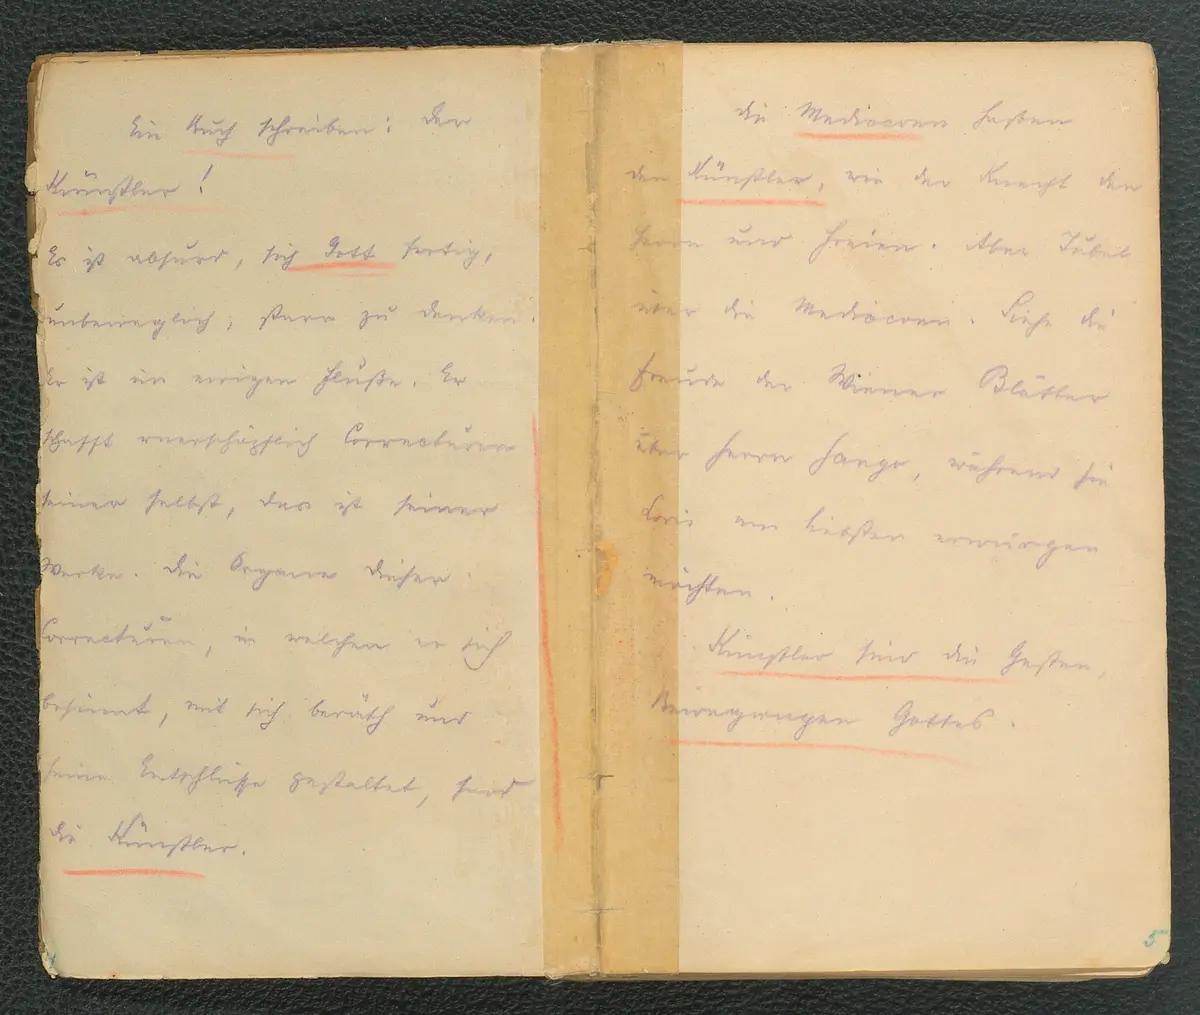 Ein Buch schreiben: Der
Künstler!
Es ist absurd, sich Gott fertig,
unbeweglich, starr zu denken.
Er ist im ewigen Fluße. Er
schafft unerschöpflich Correcturen
seiner selbst, das ist seiner
Werke. Die Organe dieser
Correcturen, in welchen er sich
besinnt, mit sich beräth und
seine Entschlüsse gestaltet, sind
die Künstler.
Die Mediocren hassen
den Künstler, wie der Knecht den
Herrn und Freien. Aber Jubel
über die Mediocren. Siehe die
Freude der Wiener Blätter
über Herrn Hango, während sie
Loris am liebsten erwürgen
möchten.
Künstler sind die Gesten,
Bewegungen Gottes.
5